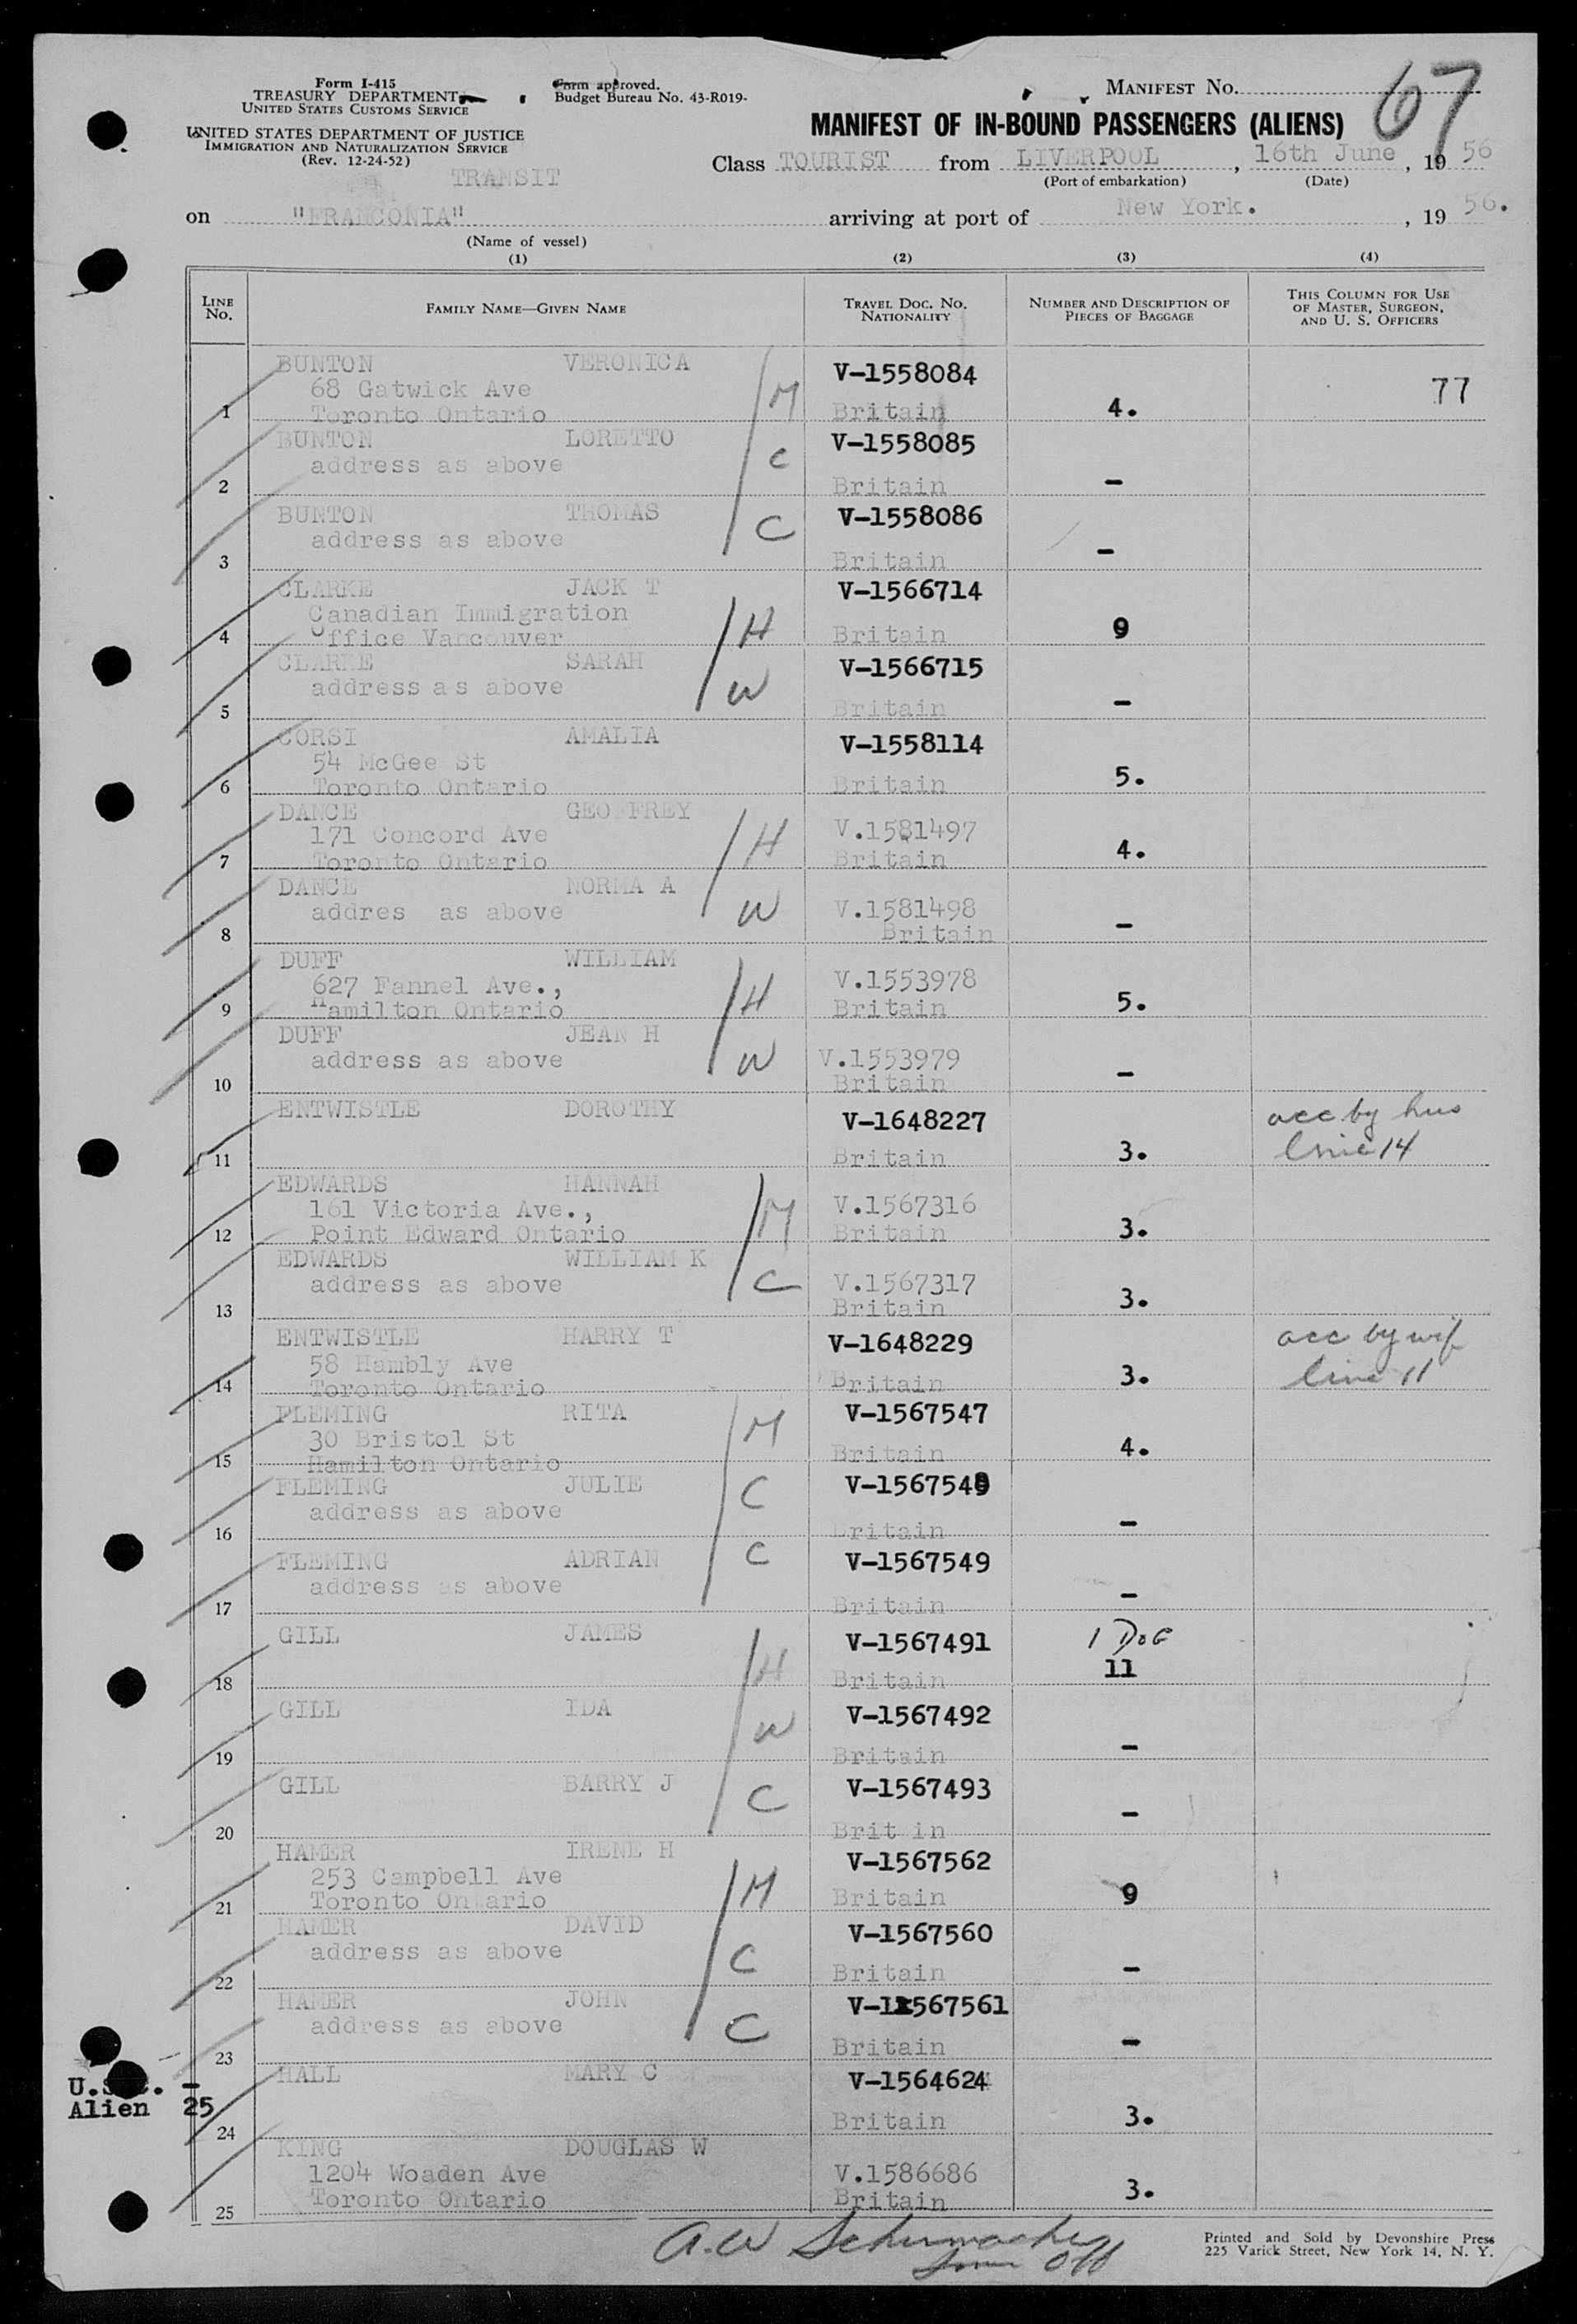 Form I-415
TREASURY DEPARTMENT
UNITED STATES CUSTOMS SERVICE
UNITED STATES DEPARTMENT OF JUSTICE
IMMIGRATION AND NATURALIZATION SERVICE
(Rev. 12-24-52)
Form approved.
Budget Bureau No. 43-R019-
MANIFEST NO. 67
MANIFEST OF IN-BOUND PASSENGERS (ALIENS)
Class TOURIST from LIVERPOOL, 16th June, 19 56
(Port of embarkation) (Date)
TRANSIT
on "FRANCONIA" arriving at port of New York. , 19 56.
(Name of vessel)
(1) (2) (3) (4)
LINE NO. FAMILY NAME—GIVEN NAME TRAVEL DOC. NO. NATIONALITY NUMBER AND DESCRIPTION OF PIECES OF BAGGAGE THIS COLUMN FOR USE OF MASTER, SURGEON, AND U. S. OFFICERS
BUNTON VERONICA V-1558084 77
68 Gatwick Ave M
1 Toronto Ontario Britain 4.
BUNTON LORETTO V-1558085
address as above C
2 Britain -
BUNTON THOMAS V-1558086
address as above C
3 Britain -
CLARKE JACK T V-1566714
Canadian Immigration
4 Office Vancouver H Britain 9
CLARKE SARAH V-1566715
address as above W
5 Britain -
CORSI AMALIA V-1558114
54 McGee St
6 Toronto Ontario Britain 5.
DANCE GEOFFREY
171 Concord Ave H V.1581497
7 Toronto Ontario Britain 4.
DANCE NORMA A
addres as above W V.1581498
8 Britain -
DUFF WILLIAM
627 Fannel Ave., H V.1553978
9 Hamilton Ontario Britain 5.
DUFF JEAN H
address as above W V.1553979
10 Britain -
ENTWISTLE DOROTHY V-1648227 acc by hus
11 Britain 3. line 14
EDWARDS HANNAH
161 Victoria Ave., M V.1567316
12 Point Edward Ontario Britain 3.
EDWARDS WILLIAM K
address as above C V.1567317
13 Britain 3.
ENTWISTLE HARRY T V-1648229 acc by wif
58 Hambly Ave
14 Toronto Ontario Britain 3. line 11
FLEMING RITA V-1567547
30 Bristol St M
15 Hamilton Ontario Britain 4.
FLEMING JULIE V-1567548
address as above C
16 Britain -
FLEMING ADRIAN C V-1567549
address as above
17 Britain -
GILL JAMES V-1567491 1 DOG
18 H Britain 11
GILL IDA V-1567492
19 W Britain -
GILL BARRY J V-1567493
C
20 Brit in -
HAMER IRENE H V-1567562
253 Campbell Ave M
21 Toronto Ontario Britain 9
HAMER DAVID V-1567560
address as above C
22 Britain -
HAMER JOHN V-1567561
address as above C
23 Britain -
HALL MARY C V-1564624
24 Britain 3.
U.S.C. -
Alien 25
KING DOUGLAS W
1204 Woaden Ave V.1586686
25 Toronto Ontario Britain 3.
A.W Schumacher
Imm Off
Printed and Sold by Devonshire Press
225 Varick Street, New York 14, N. Y.